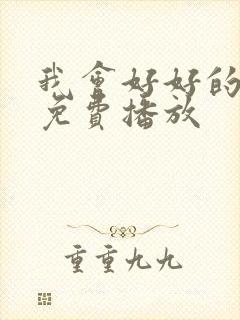 我會好好的
免費播放
重重九九